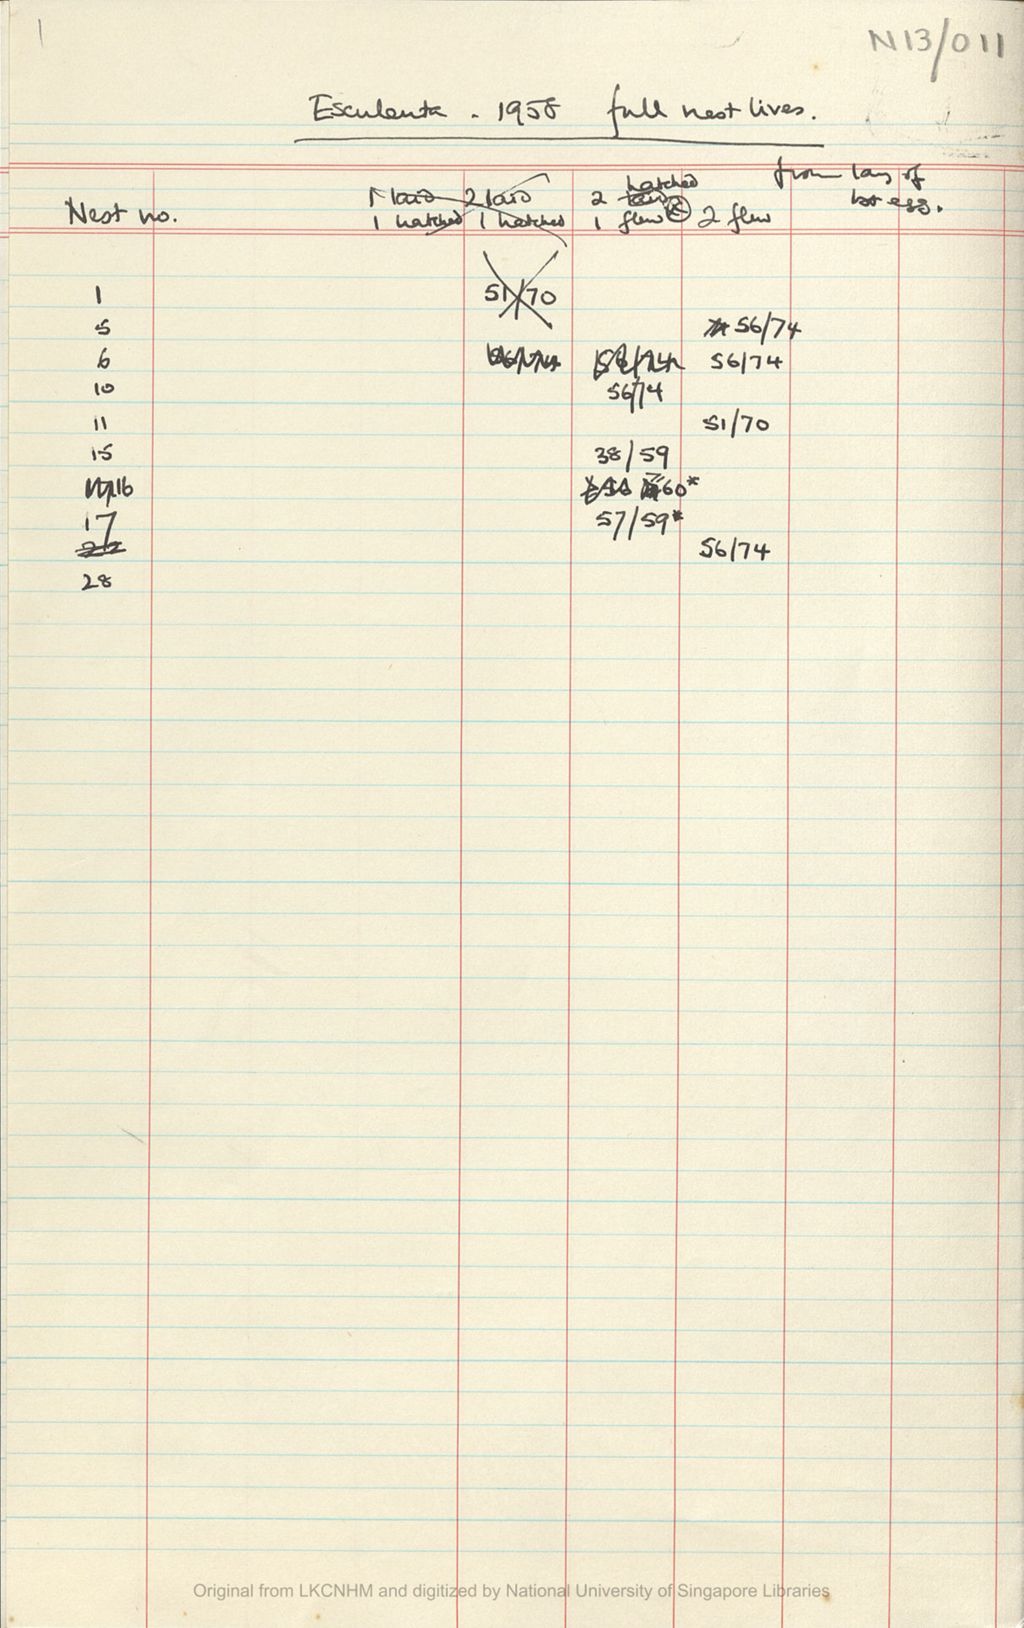 1
N13/011
Esculenta - 1958 full nest lives.
from lay of
1st egg.
Nest no. 1 laid 2 laid 2 hatched
1 hatched 1 hatched 1 flew 2 flew
1 51/70
5 56/74
6 56/74
10 56/74
11 51/70
15 38/59
16 60*
17 57/59*
56/74
28
Original from LKCNHM and digitized by National University of Singapore Libraries